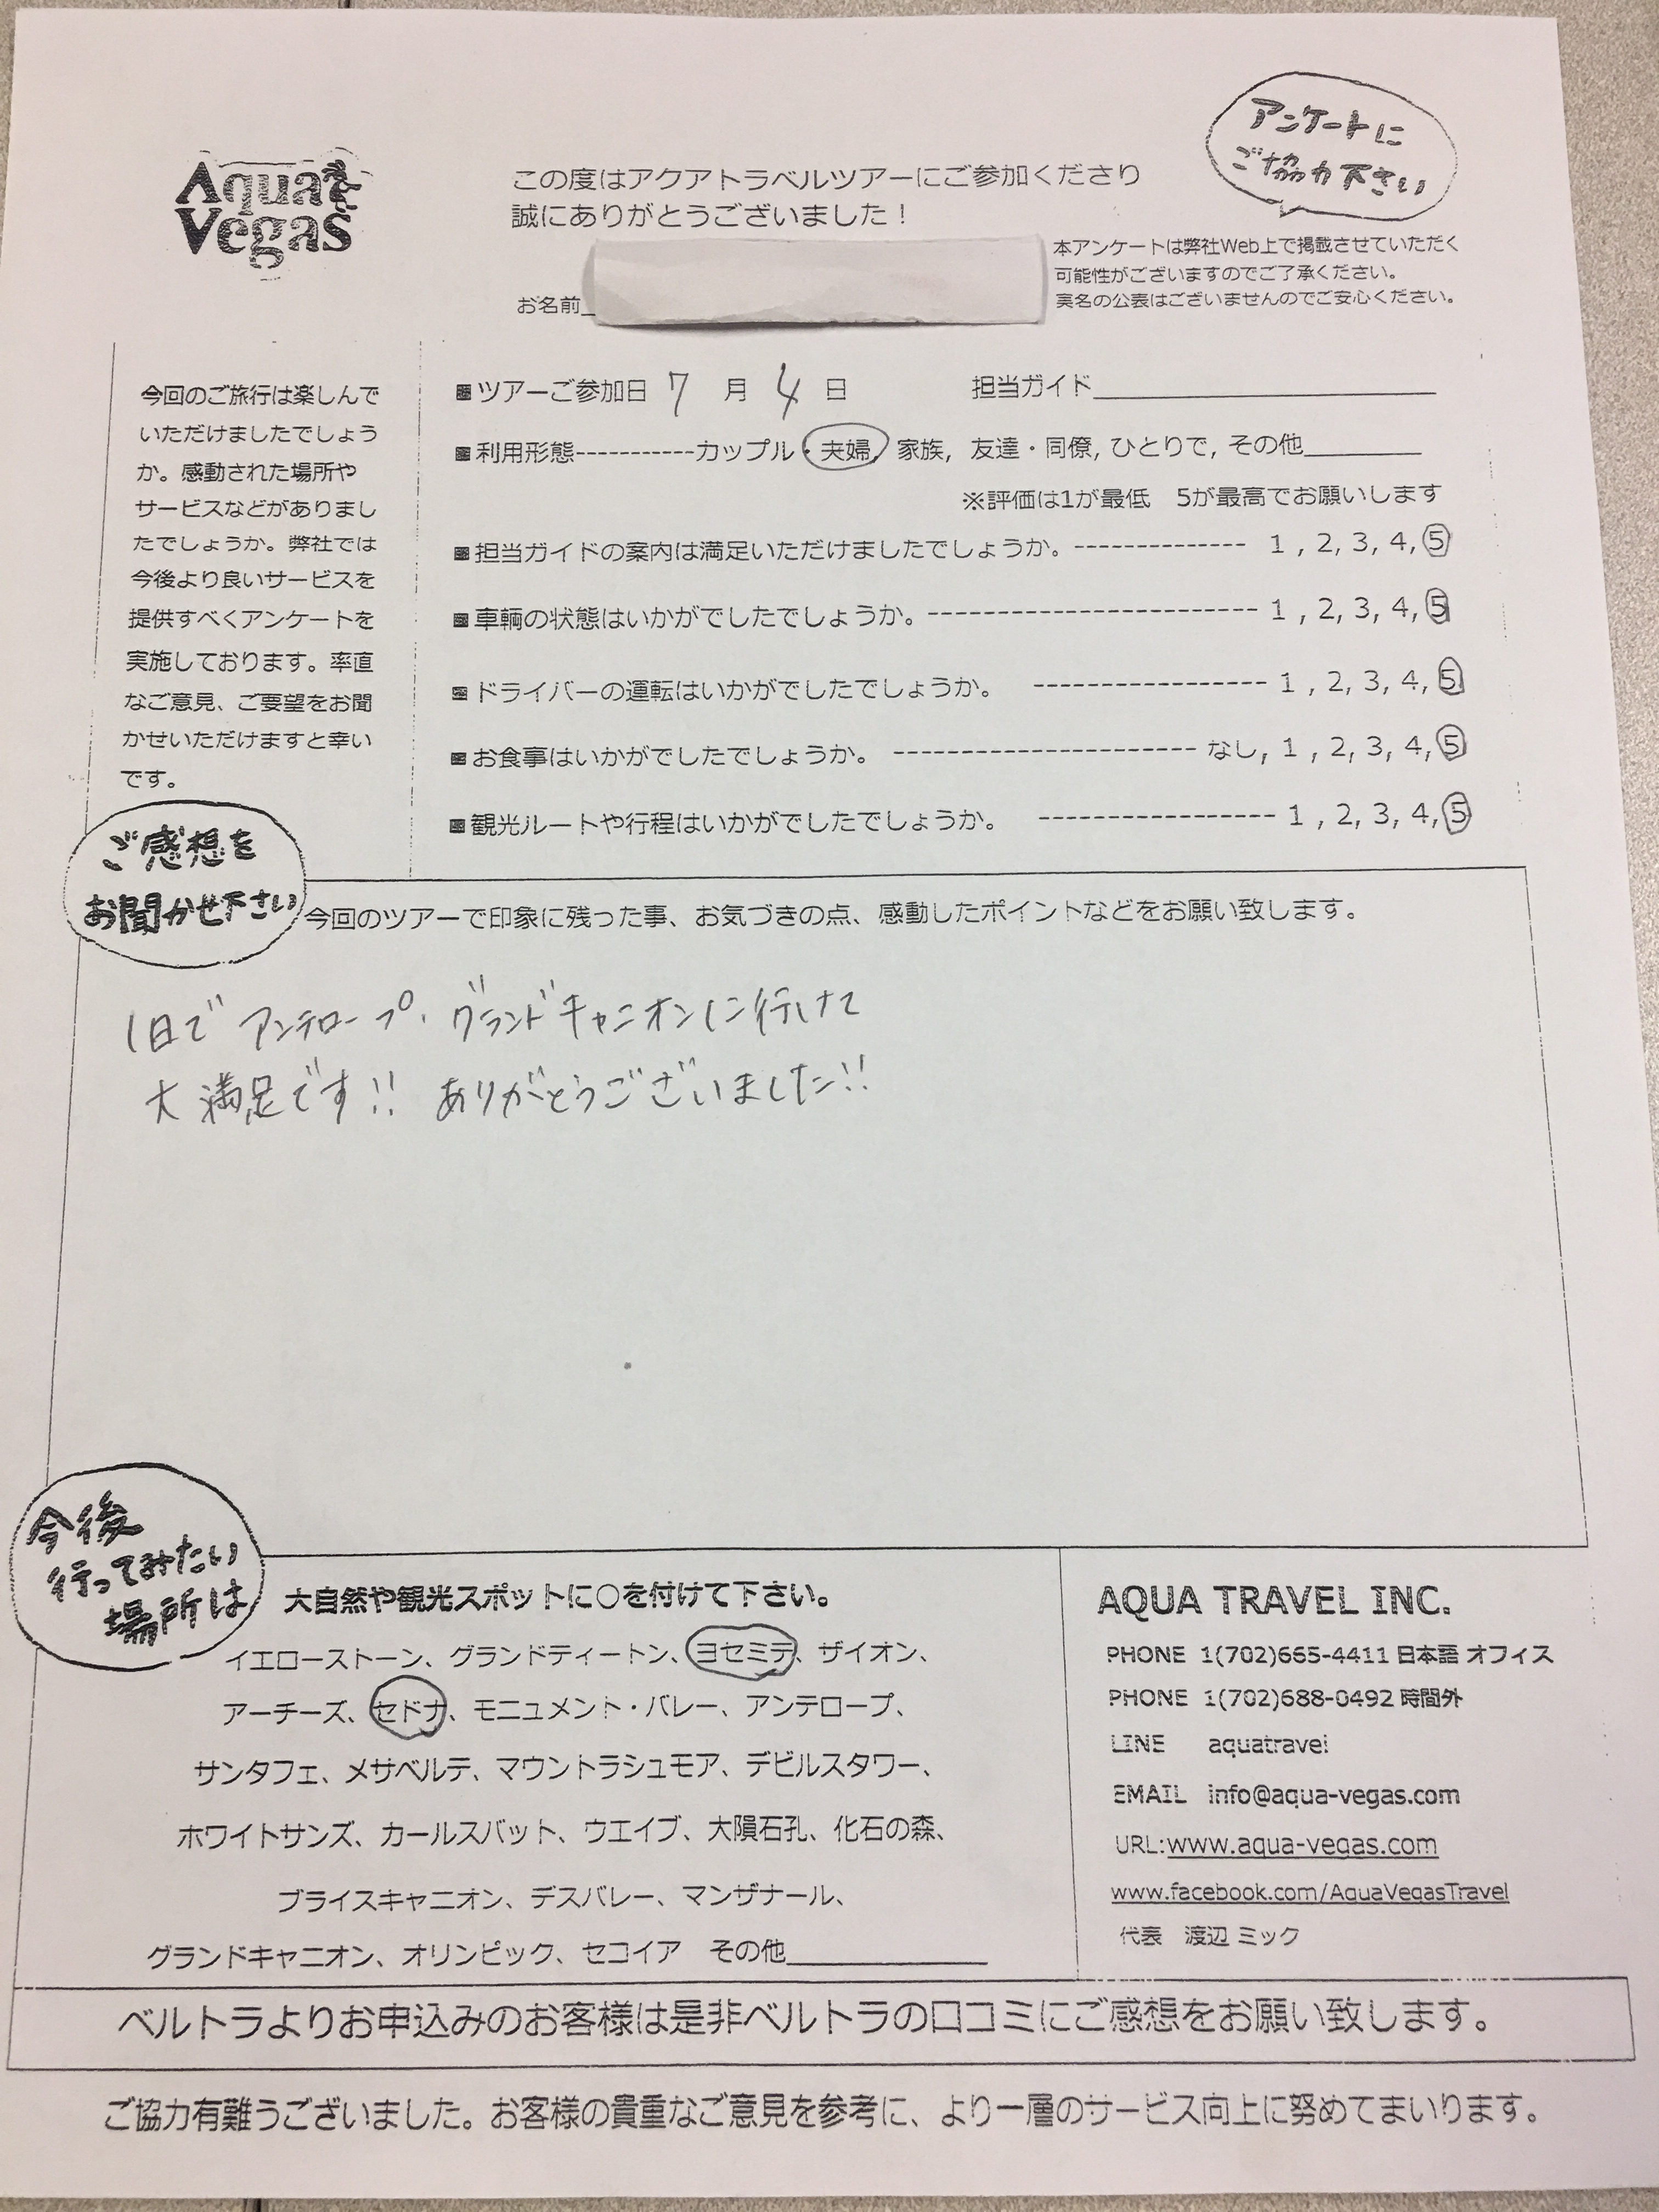 Aqua
Vegas
この度はアクアトラベルツアーにご参加くださり
誠にありがとうございました！
アンケートに
ご協力下さい
本アンケートは弊社Web上で掲載させていただく
可能性がございますのでご了承ください。
実名の公表はございませんのでご安心ください。
お名前
今回のご旅行は楽しんで
いただけましたでしょう
か。感動された場所や
サービスなどがありまし
たでしょうか。弊社では
今後より良いサービスを
提供すべくアンケートを
実施しております。率直
なご意見、ご要望をお聞
かせいただけますと幸い
です。
■ツアーご参加日 7 月 4 日 担当ガイド
■利用形態-----------カップル・夫婦, 家族, 友達・同僚, ひとりで, その他
※評価は1が最低 5が最高でお願いします
■担当ガイドの案内は満足いただけましたでしょうか。-------------- 1 , 2, 3, 4, 5
■車輌の状態はいかがでしたでしょうか。--------------------------- 1 , 2, 3, 4, 5
■ドライバーの運転はいかがでしたでしょうか。 ------------------- 1 , 2, 3, 4, 5
■お食事はいかがでしたでしょうか。 ------------------------- なし, 1 , 2, 3, 4, 5
■観光ルートや行程はいかがでしたでしょうか。 ------------------- 1 , 2, 3, 4, 5
ご感想を
お聞かせ下さい
今回のツアーで印象に残った事、お気づきの点、感動したポイントなどをお願い致します。
1日でアンテロープ・グランドキャニオンに行けて
大満足です!! ありがとうございました!!
今後
行ってみたい
場所は
大自然や観光スポットに○を付けて下さい。
イエローストーン、グランドティートン、ヨセミテ、ザイオン、
アーチーズ、セドナ、モニュメント・バレー、アンテロープ、
サンタフェ、メサベルテ、マウントラシュモア、デビルスタワー、
ホワイトサンズ、カールスバット、ウエイブ、大隕石孔、化石の森、
ブライスキャニオン、デスバレー、マンザナール、
グランドキャニオン、オリンピック、セコイア その他
AQUA TRAVEL INC.
PHONE 1(702)665-4411 日本語 オフィス
PHONE 1(702)688-0492 時間外
LINE aquatravel
EMAIL info@aqua-vegas.com
URL:www.aqua-vegas.com
www.facebook.com/AquaVegasTravel
代表 渡辺 ミック
ベルトラよりお申込みのお客様は是非ベルトラの口コミにご感想をお願い致します。
ご協力有難うございました。お客様の貴重なご意見を参考に、より一層のサービス向上に努めてまいります。